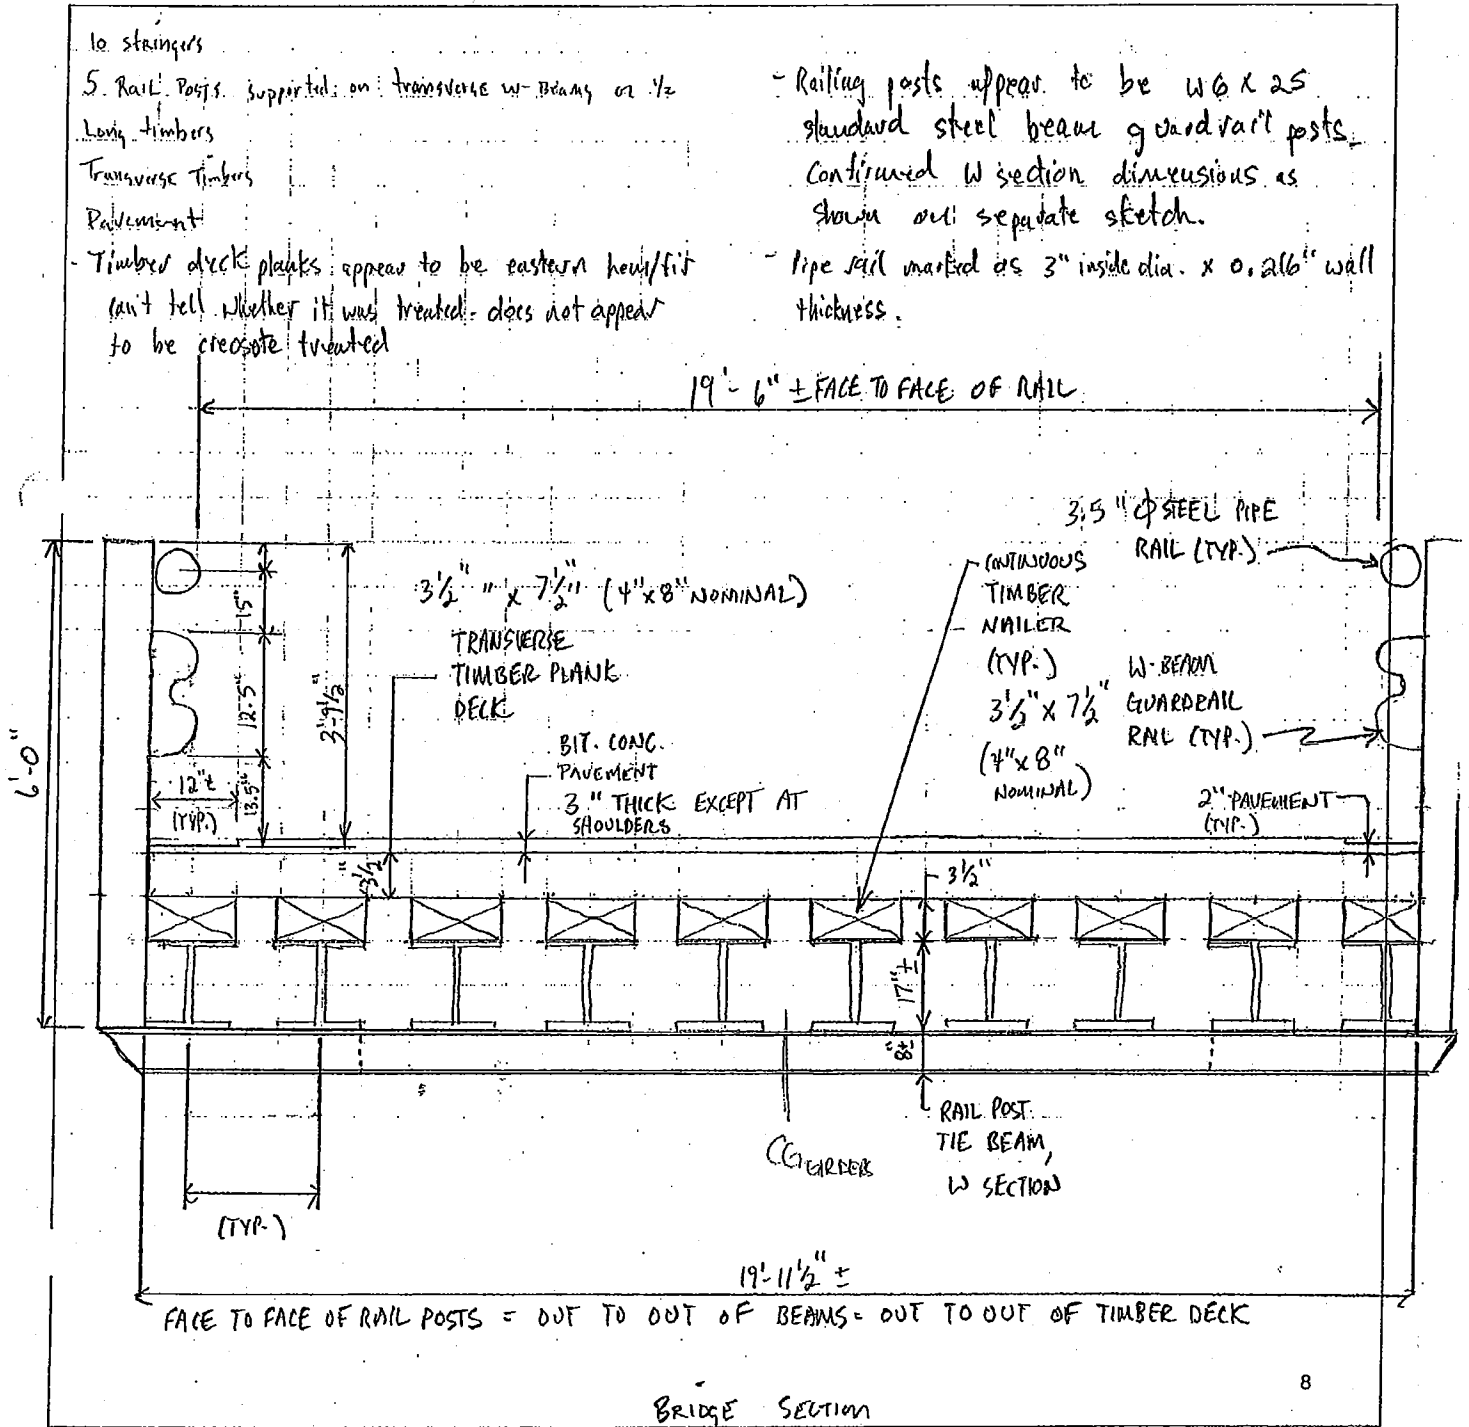 10 stringers
5 Rail Posts supported on transverse W-Beams @ 1/2
Long timbers
Transverse Timbers
Pavement
- Timber deck planks appear to be eastern hem/fir
can't tell whether it was treated - does not appear
to be creosote treated
- Railing posts appear to be W6 x 25
standard steel beam guardrail posts.
Confirmed W section dimensions as
shown on separate sketch.
- Pipe rail marked as 3" inside dia. x 0.216" wall
thickness.
19'-6" ± FACE TO FACE OF RAIL
3.5" ϕ STEEL PIPE
RAIL (TYP.)
CONTINUOUS
TIMBER
NAILER
(TYP.)
3 1/2" x 7 1/2"
(4" x 8"
NOMINAL)
W-BEAM
GUARDRAIL
RAIL (TYP.)
3 1/2" " x 7 1/2" (4" x 8" NOMINAL)
TRANSVERSE
TIMBER PLANK
DECK
15"
12.5"
13.5"
3'-9 1/2"
6'-0"
12"±
(TYP.)
BIT. CONC.
PAVEMENT
3" THICK EXCEPT AT
SHOULDERS
2" PAVEMENT
(TYP.)
3 1/2"
3 1/2"
17"±
8"±
RAIL POST
TIE BEAM,
W SECTION
CG GIRDERS
(TYP.)
19'-11 1/2" ±
FACE TO FACE OF RAIL POSTS = OUT TO OUT OF BEAMS = OUT TO OUT OF TIMBER DECK
8
BRIDGE SECTION